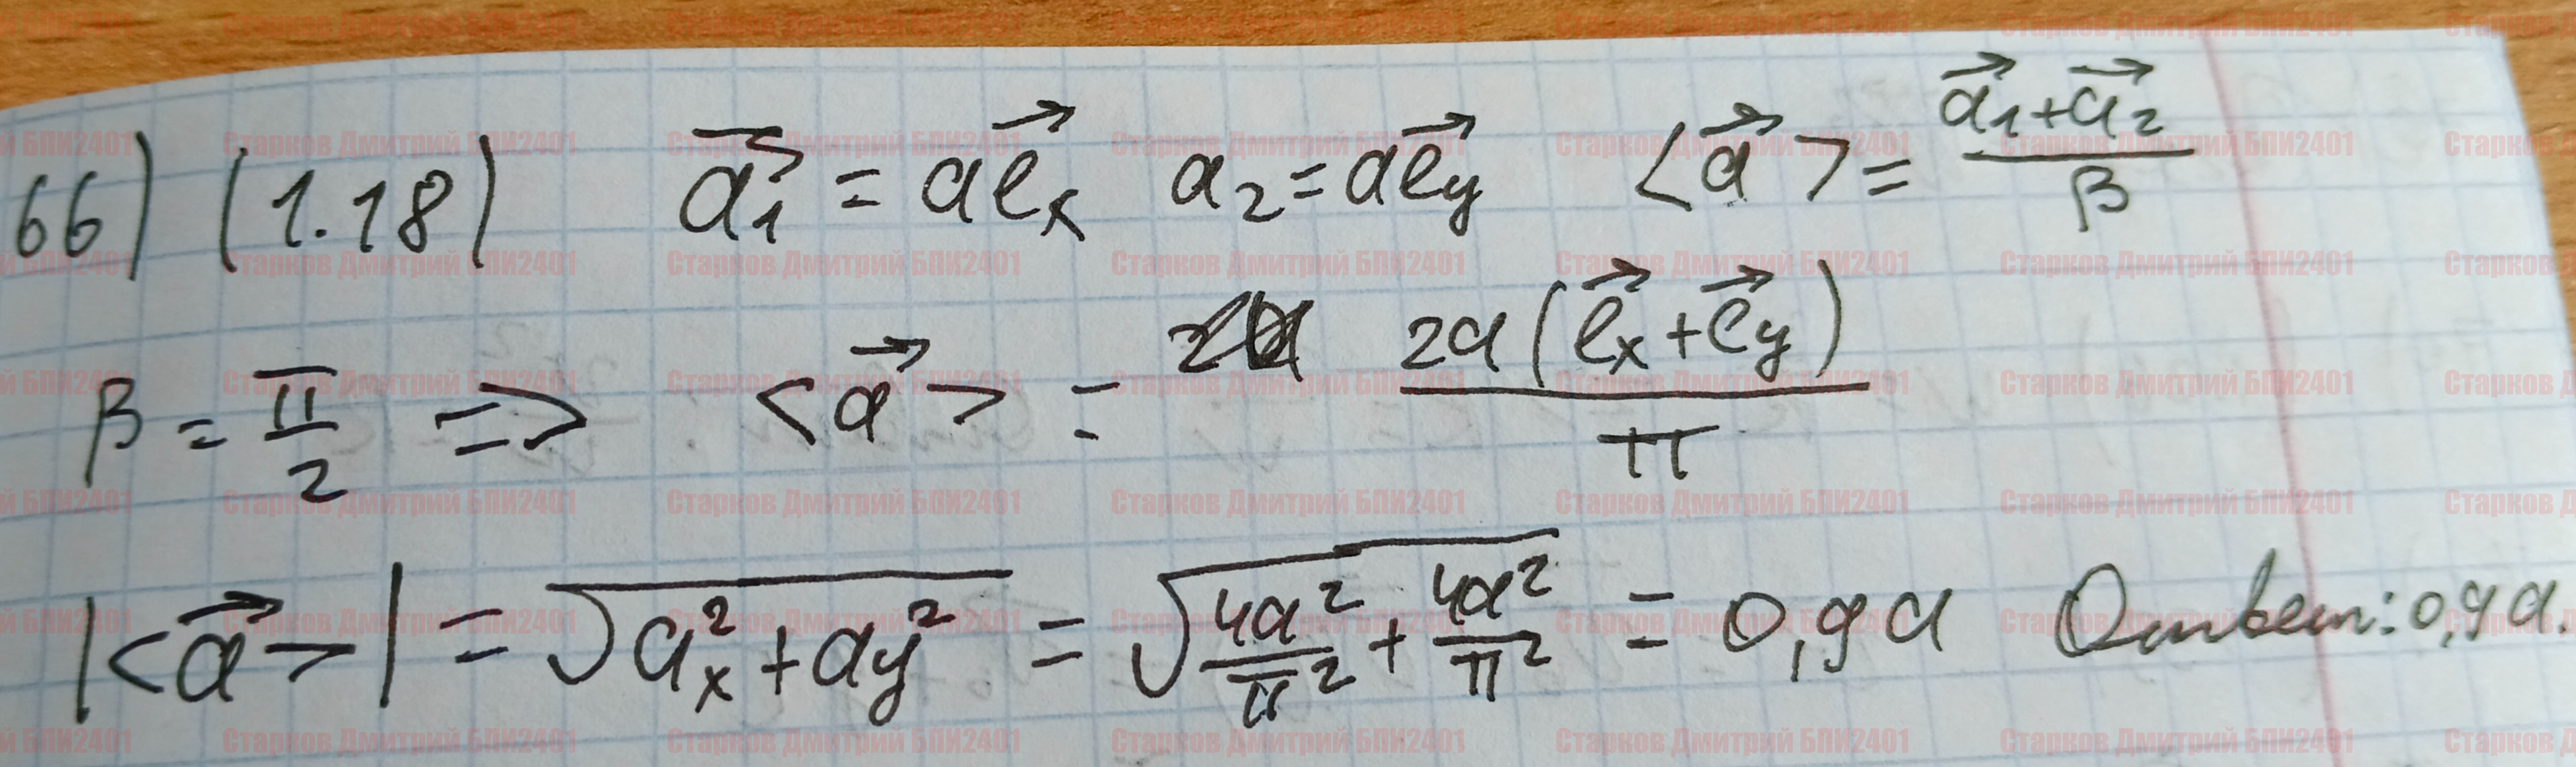 66) (1.18) a⃗₁ = ae⃗ₓ a₂ = ae⃗y <a⃗> = (a⃗₁+a⃗₂)/β
β = π/2 => <a⃗> = 2a(e⃗ₓ+e⃗y)/π
|<a⃗>| = √(aₓ²+ay²) = √(4a²/π² + 4a²/π²) = 0,9a Ответ: 0,9a.
Старков Дмитрий БПИ2401